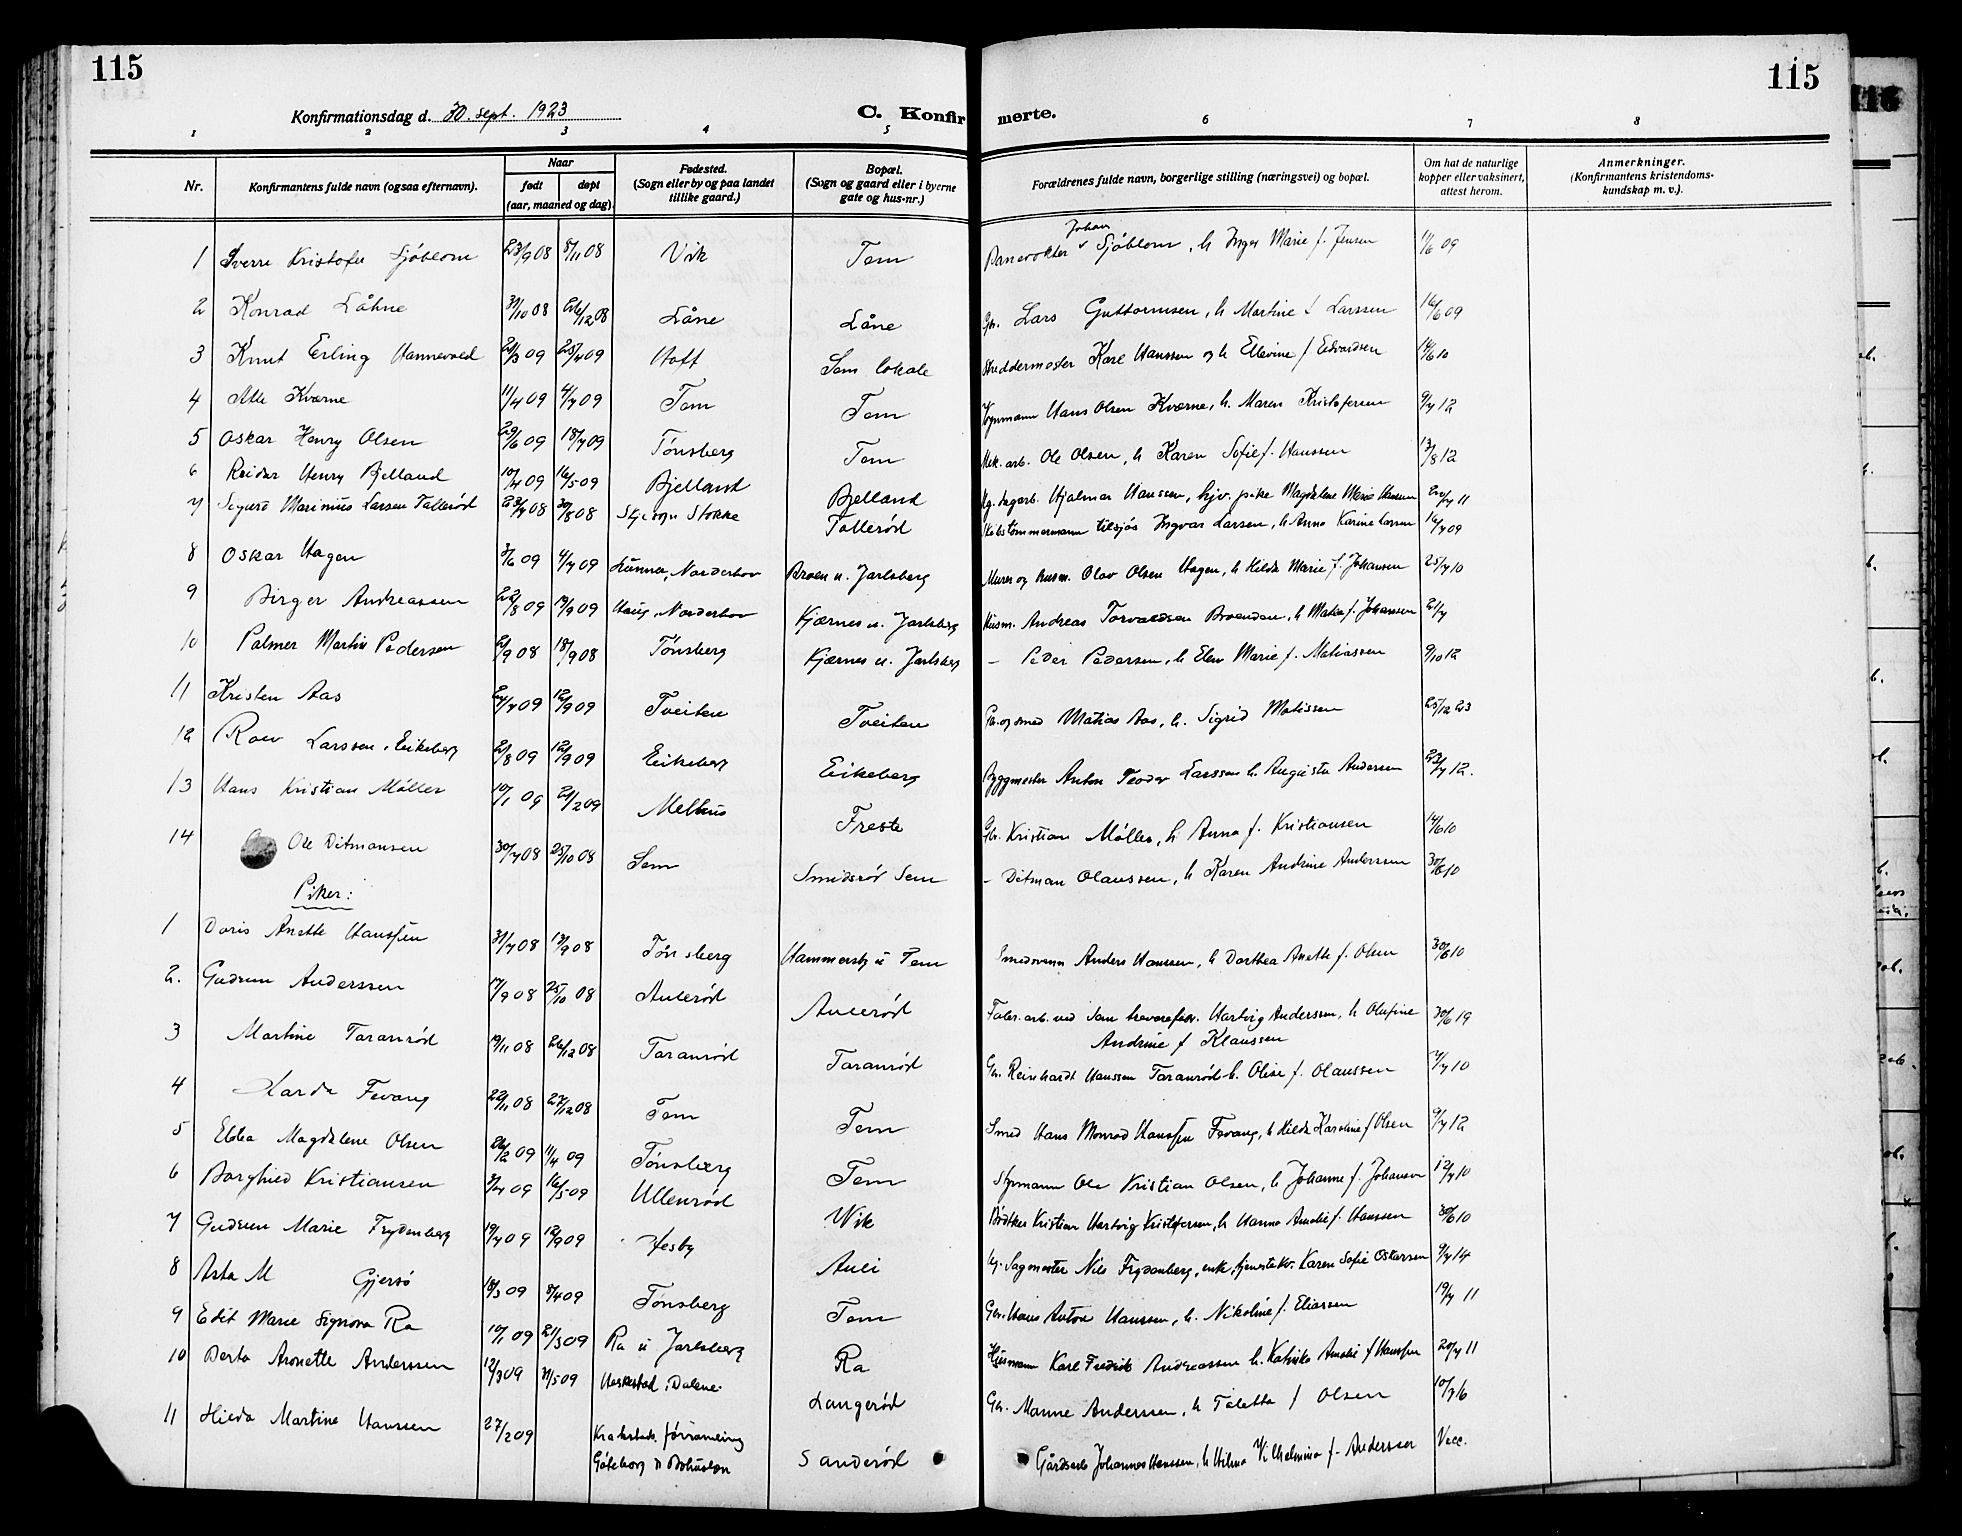 115
115
Konfirmationsdag d. 30. sept. 1923
C. Konfirmerte.
1 2 3 4 5 6 7 8
Nr. Konfirmantens fulde navn (ogsaa efternavn). Naar født døpt (aar, maaned og dag). Fødested. (Sogn eller by og paa landet tillike gaard.) Bopæl. (Sogn og gaard eller i byerne gate og hus-nr.) Forældrenes fulde navn, borgerlige stilling (næringsvei) og bopæl. Om hat de naturlige kopper eller vaksinert, attest herom. Anmerkninger. (Konfirmantens kristendoms-kundskap m. v.).
1 Sverre Kristofer Sjöblom 23/9 08 8/11 08 Vik Tem Banevokter Johan Sjöblom, h Inger Marie f. Jensen 11/6 09
2 Konrad Låhne 31/10 08 26/12 08 Låne Låne Gbr. Lars Guttormsen, h Martine f Larssen 16/6 09
3 Knut Erling Hannevold 21/3 09 25/4 09 Hoff Sem lokale Karl Hanssen og h Ellevine f Edvardsen 14/6 10
4 Atle Kværne 11/4 09 4/7 09 Tem Tem Hans Olsen Kværne, h. Maren Kristofersen 9/7 12
5 Oskar Henry Olsen 29/6 09 18/7 09 Tønsberg Tem Mek. arb. Ole Olsen, h Karen Sofie f. Hanssen 13/8 12
6 Reidar Henry Bjelland 10/4 09 16/5 09 Bjelland Bjelland Hjalmar Hanssen, pike Magdalene Marie Hansen 20/7 11
7 Sigurd Marinius Larsen Tallerød 23/7 08 30/8 08 Stokke Tallerød Skibstømmermann tilsjøs Ingvar Larsen, h Anna Karine Larsen 16/7 09
8 Oskar Hagen 3/6 09 4/7 09 Lunner, Norderhov Broen u. Jarlsberg Murer og husm. Olav Olsen Hagen, h Hilda Marie f. Johansen 25/7 10
9 Birger Andreassen 22/8 09 19/9 09 Haug, Norderhov Kjærnes u. Jarlsberg Husm. Andreas Torvaldsen Broenden, h Matea f. Johansen 21/7
10 Palmer Martin Pedersen 2/9 08 18/9 08 Tønsberg Kjærnes u. Jarlsberg - Peder Pedersen, h Elen Marie f. Matiassen 9/10 12
11 Kristen Aas 24/7 09 12/9 09 Tveiten Tveiten Gb. og smed Matias Aas, h. Sigrid Matissen 25/12 23
12 Rolv Larssen, Eikeberg 2/8 09 12/9 09 Eikeberg Eikeberg Byggmester Anton Teodor Larssen h. Augusta Andersen 23/7 12.
13 Hans Kristian Möller 10/1 09 21/2 09 Melhus Freste Gbr. Kristian Möller, h Anna f. Kristiansen 14/6 10
14 Ole Ditmansen 30/7 08 25/10 08 Sem Smidsrød Sem - Ditman Olaussen, h Karen Andrine Anderssen 30/6 10
Piker:
1 Doris Anette Hanssen 31/7 08 13/9 08 Tønsberg Hammersby u Tem Smedsvenn Anders Hanssen, h Dorthea Anette f. Olsen 30/6 10
2. Gudrun Anderssen 17/9 08 25/10 08 Aulerød Aulerød Fabr. arb. ved Sem Hartvig Anderssen, h Olufine Andrine f Klaussen 30/6 19
3 Martine Taranrød 19/11 08 26/12 08 Taranrød Taranrød Gbr. Reinhardt Hanssen Taranrød h. Oline f. Olaussen 7/7 10
4 Fevang 22/11 08 27/12 08 Tem Tem Smed Hans Monrad Hanssen Fevang, h Hilda Karoline f Olsen 9/7 12
5 Ebba Magdalene Olsen 26/2 09 11/4 09 Tønsberg Tem Styrmann Ole Kristian Olsen, h Johanne f. Johansen 12/7 10
6 Borghild Kristiansen 3/4 09 16/5 09 Ullenrød Wik Bødtker Kristian Hartvig Kristofersen, h Hanna Amalie f. Hanssen 30/6 10
7 Gudrun Marie Frydenberg 19/7 09 12/9 09 Hesby Auli Sagmester Nils Frydenberg, enk., tjenestekv. Karen Sofie Oskarsen 9/7 14
8 Asta M Gjersø 18/3 09 8/4 09 Tønsberg Tem Gbr. Hans Anton Hanssen, h. Nikoline f. Eliassen 19/7 11
9 Edit Marie Signora Ra 10/1 09 21/3 09 Ra u Jarlsberg Ra Husmann Karl Fredrik Andreassen h. Katinka Amalie f Hanssen 20/7 11
10 Berta Anette Anderssen 12/3 09 31/5 09 Heskestad, Dalene Langerød Gbr. Manne Anderssen, h Taletta f Olsen 10/7 16
11 Hilda Martine Hanssen 27/2 09 Krokstads församling Göteborg o Bohuslen Sanderød Gårdsarb Johannes Hanssen, h Hilma Vilhelmina f. Andersson Vacc.